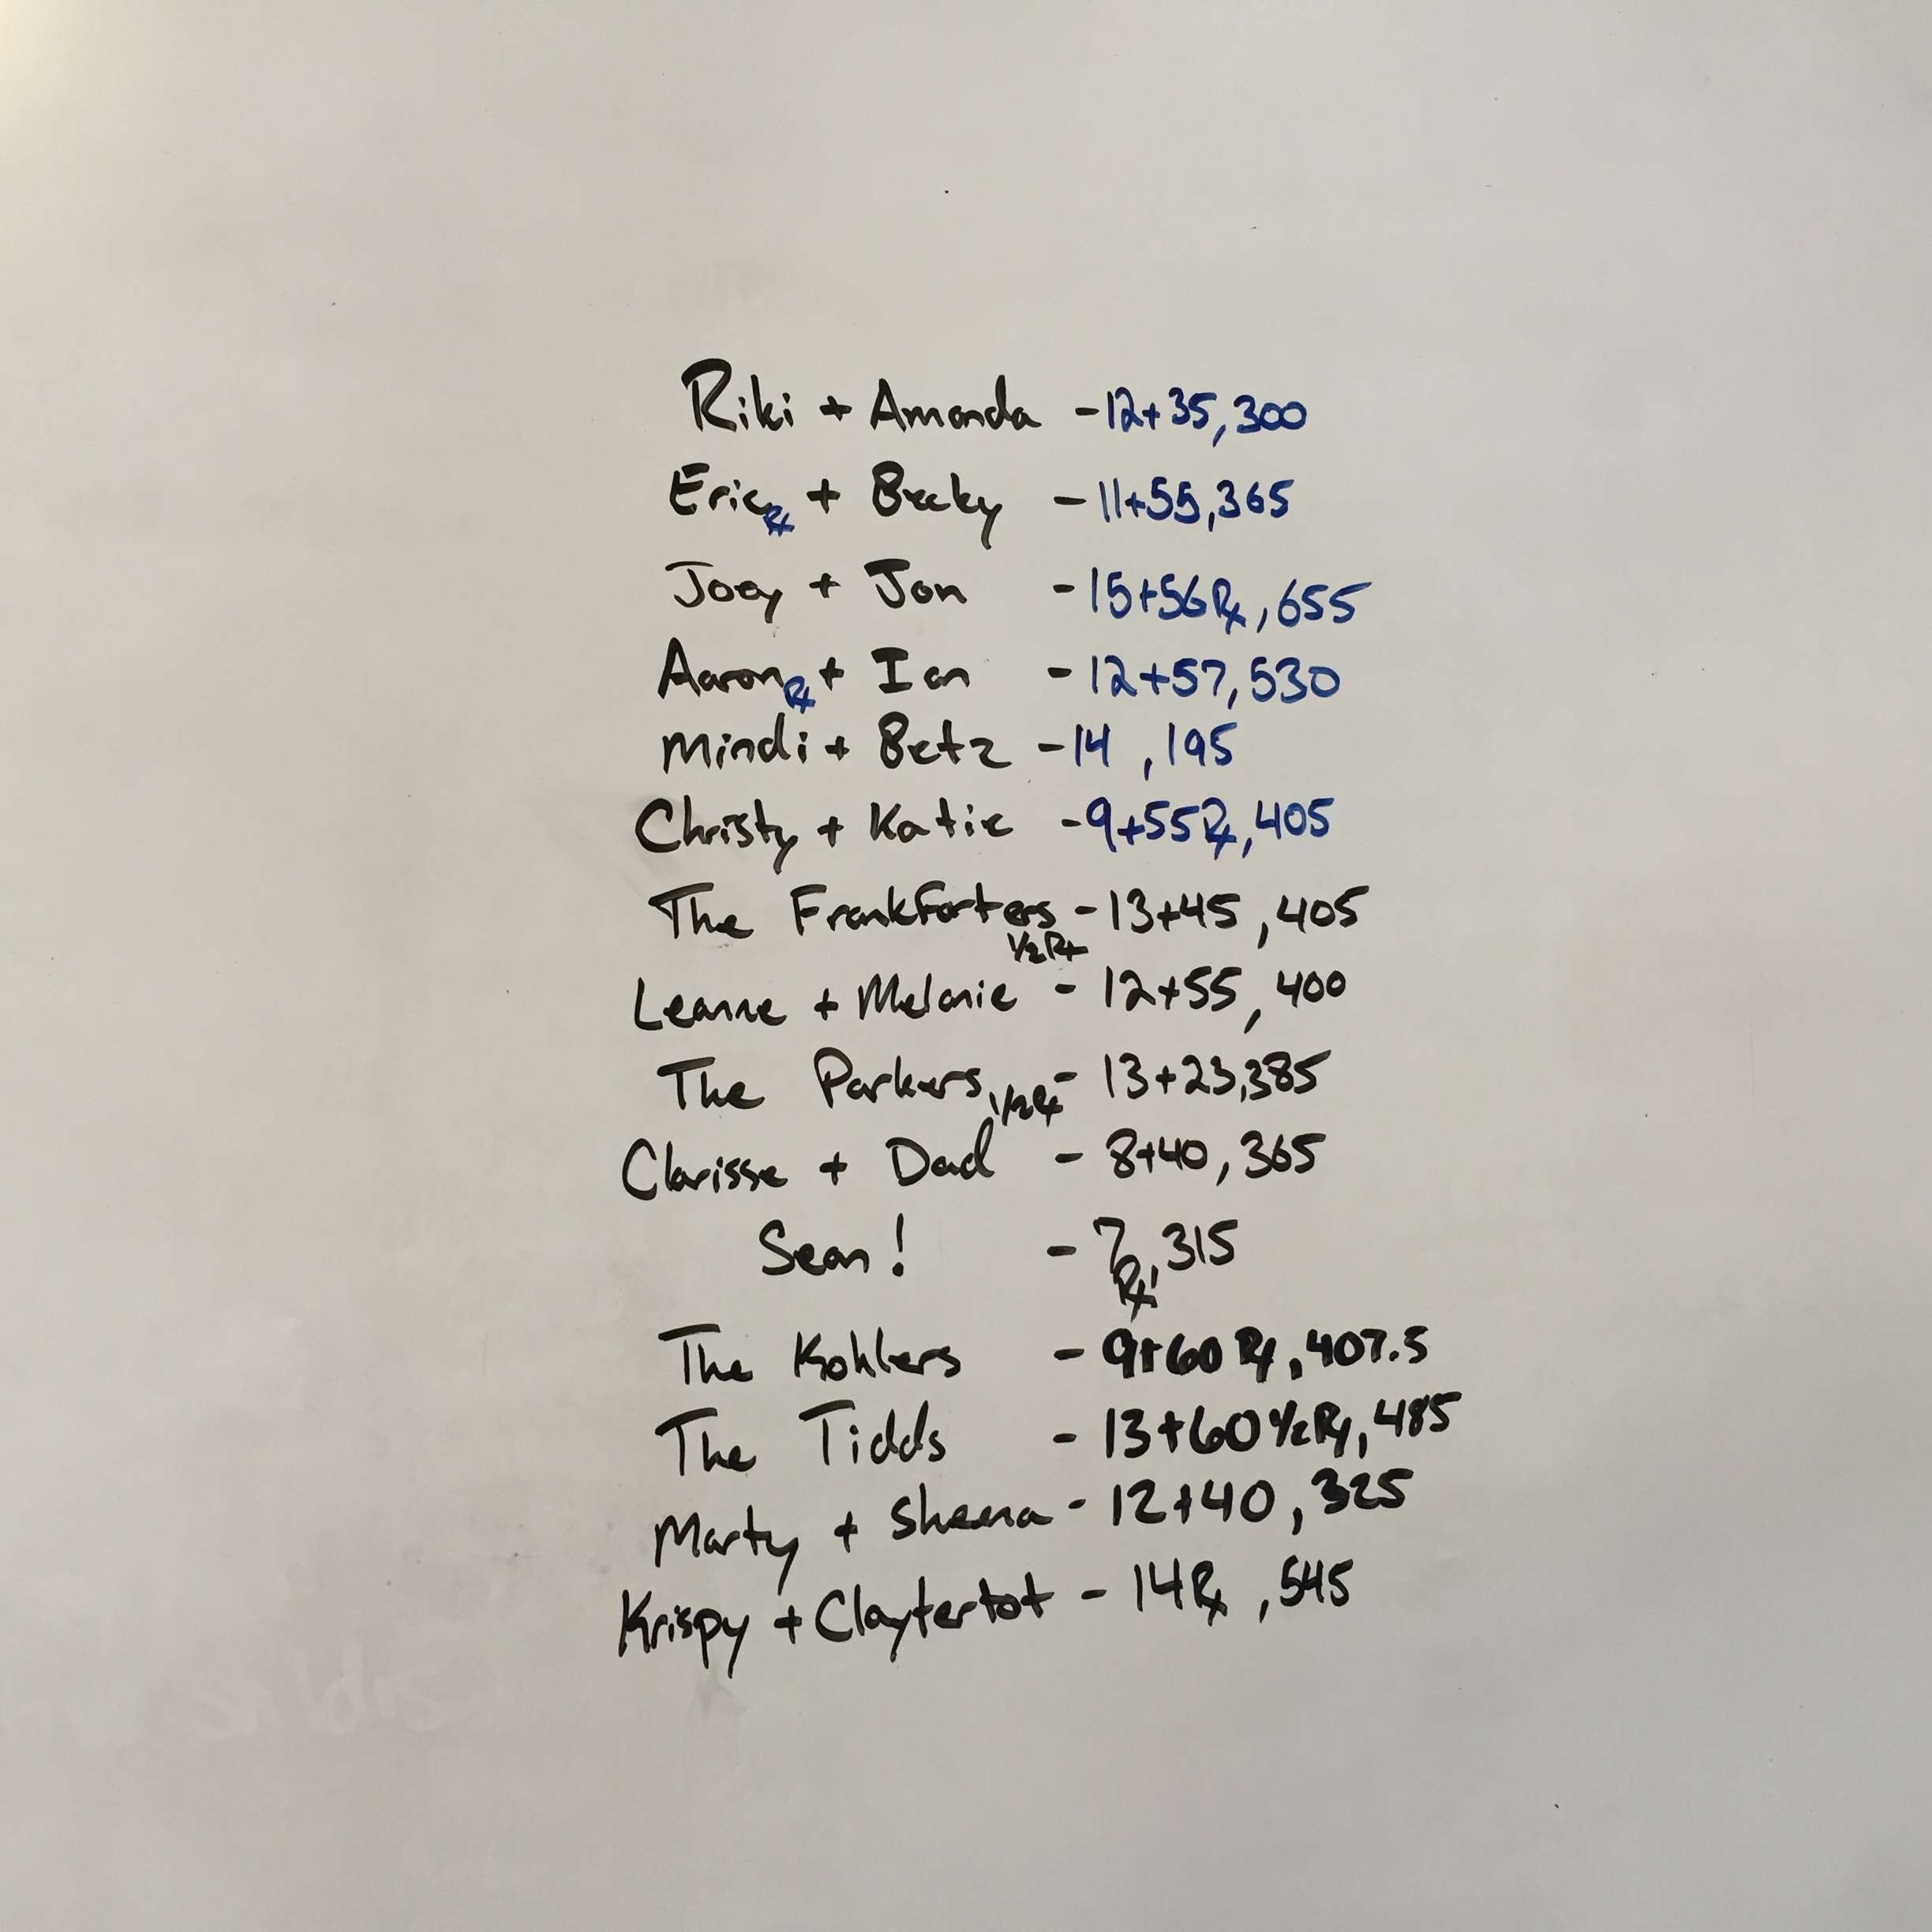 Riki + Amanda - 12+35, 300
Eric Rx + Becky - 11+55, 365
Joey + Jon - 15+56 Rx, 655
Aaron Rx + Ian - 12+57, 530
Mindi + Betz - 14 , 195
Christy + Katie - 9+55 Rx, 405
The Frankforters - 13+45 , 405
1/2 Rx
Leanne + Melanie - 12+55, 400
The Parkers 1/2 Rx - 13+23, 385
Clarisse + Dad - 8+40, 365
Sean! - 7 Rx, 315
The Kohlers - 9+60 Rx, 407.5
The Tidds - 13+60 1/2 Rx, 485
Marty + Sheena - 12+40, 325
Krispy + Claytertot - 14 Rx , 545